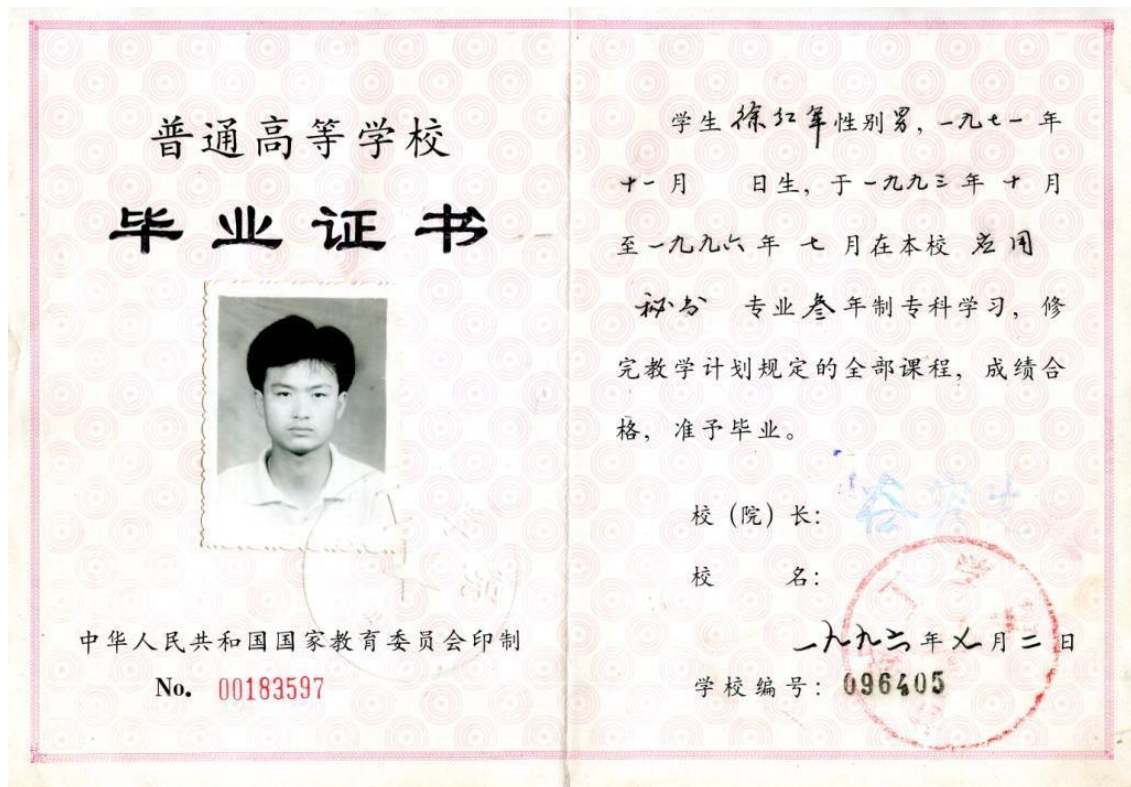 普通高等学校
毕业证书
中华人民共和国国家教育委员会印制
No. 00183597
学生 徐红军 性别 男, 一九七一 年
十一 月 日生, 于 一九九三 年 十 月
至 一九九六 年 七 月在本校 应用
秘书 专业 叁 年制专科学习, 修
完教学计划规定的全部课程, 成绩合
格, 准予毕业。
校 (院) 长:
校 名:
一九九六 年 七 月 二 日
学校编号: 096405